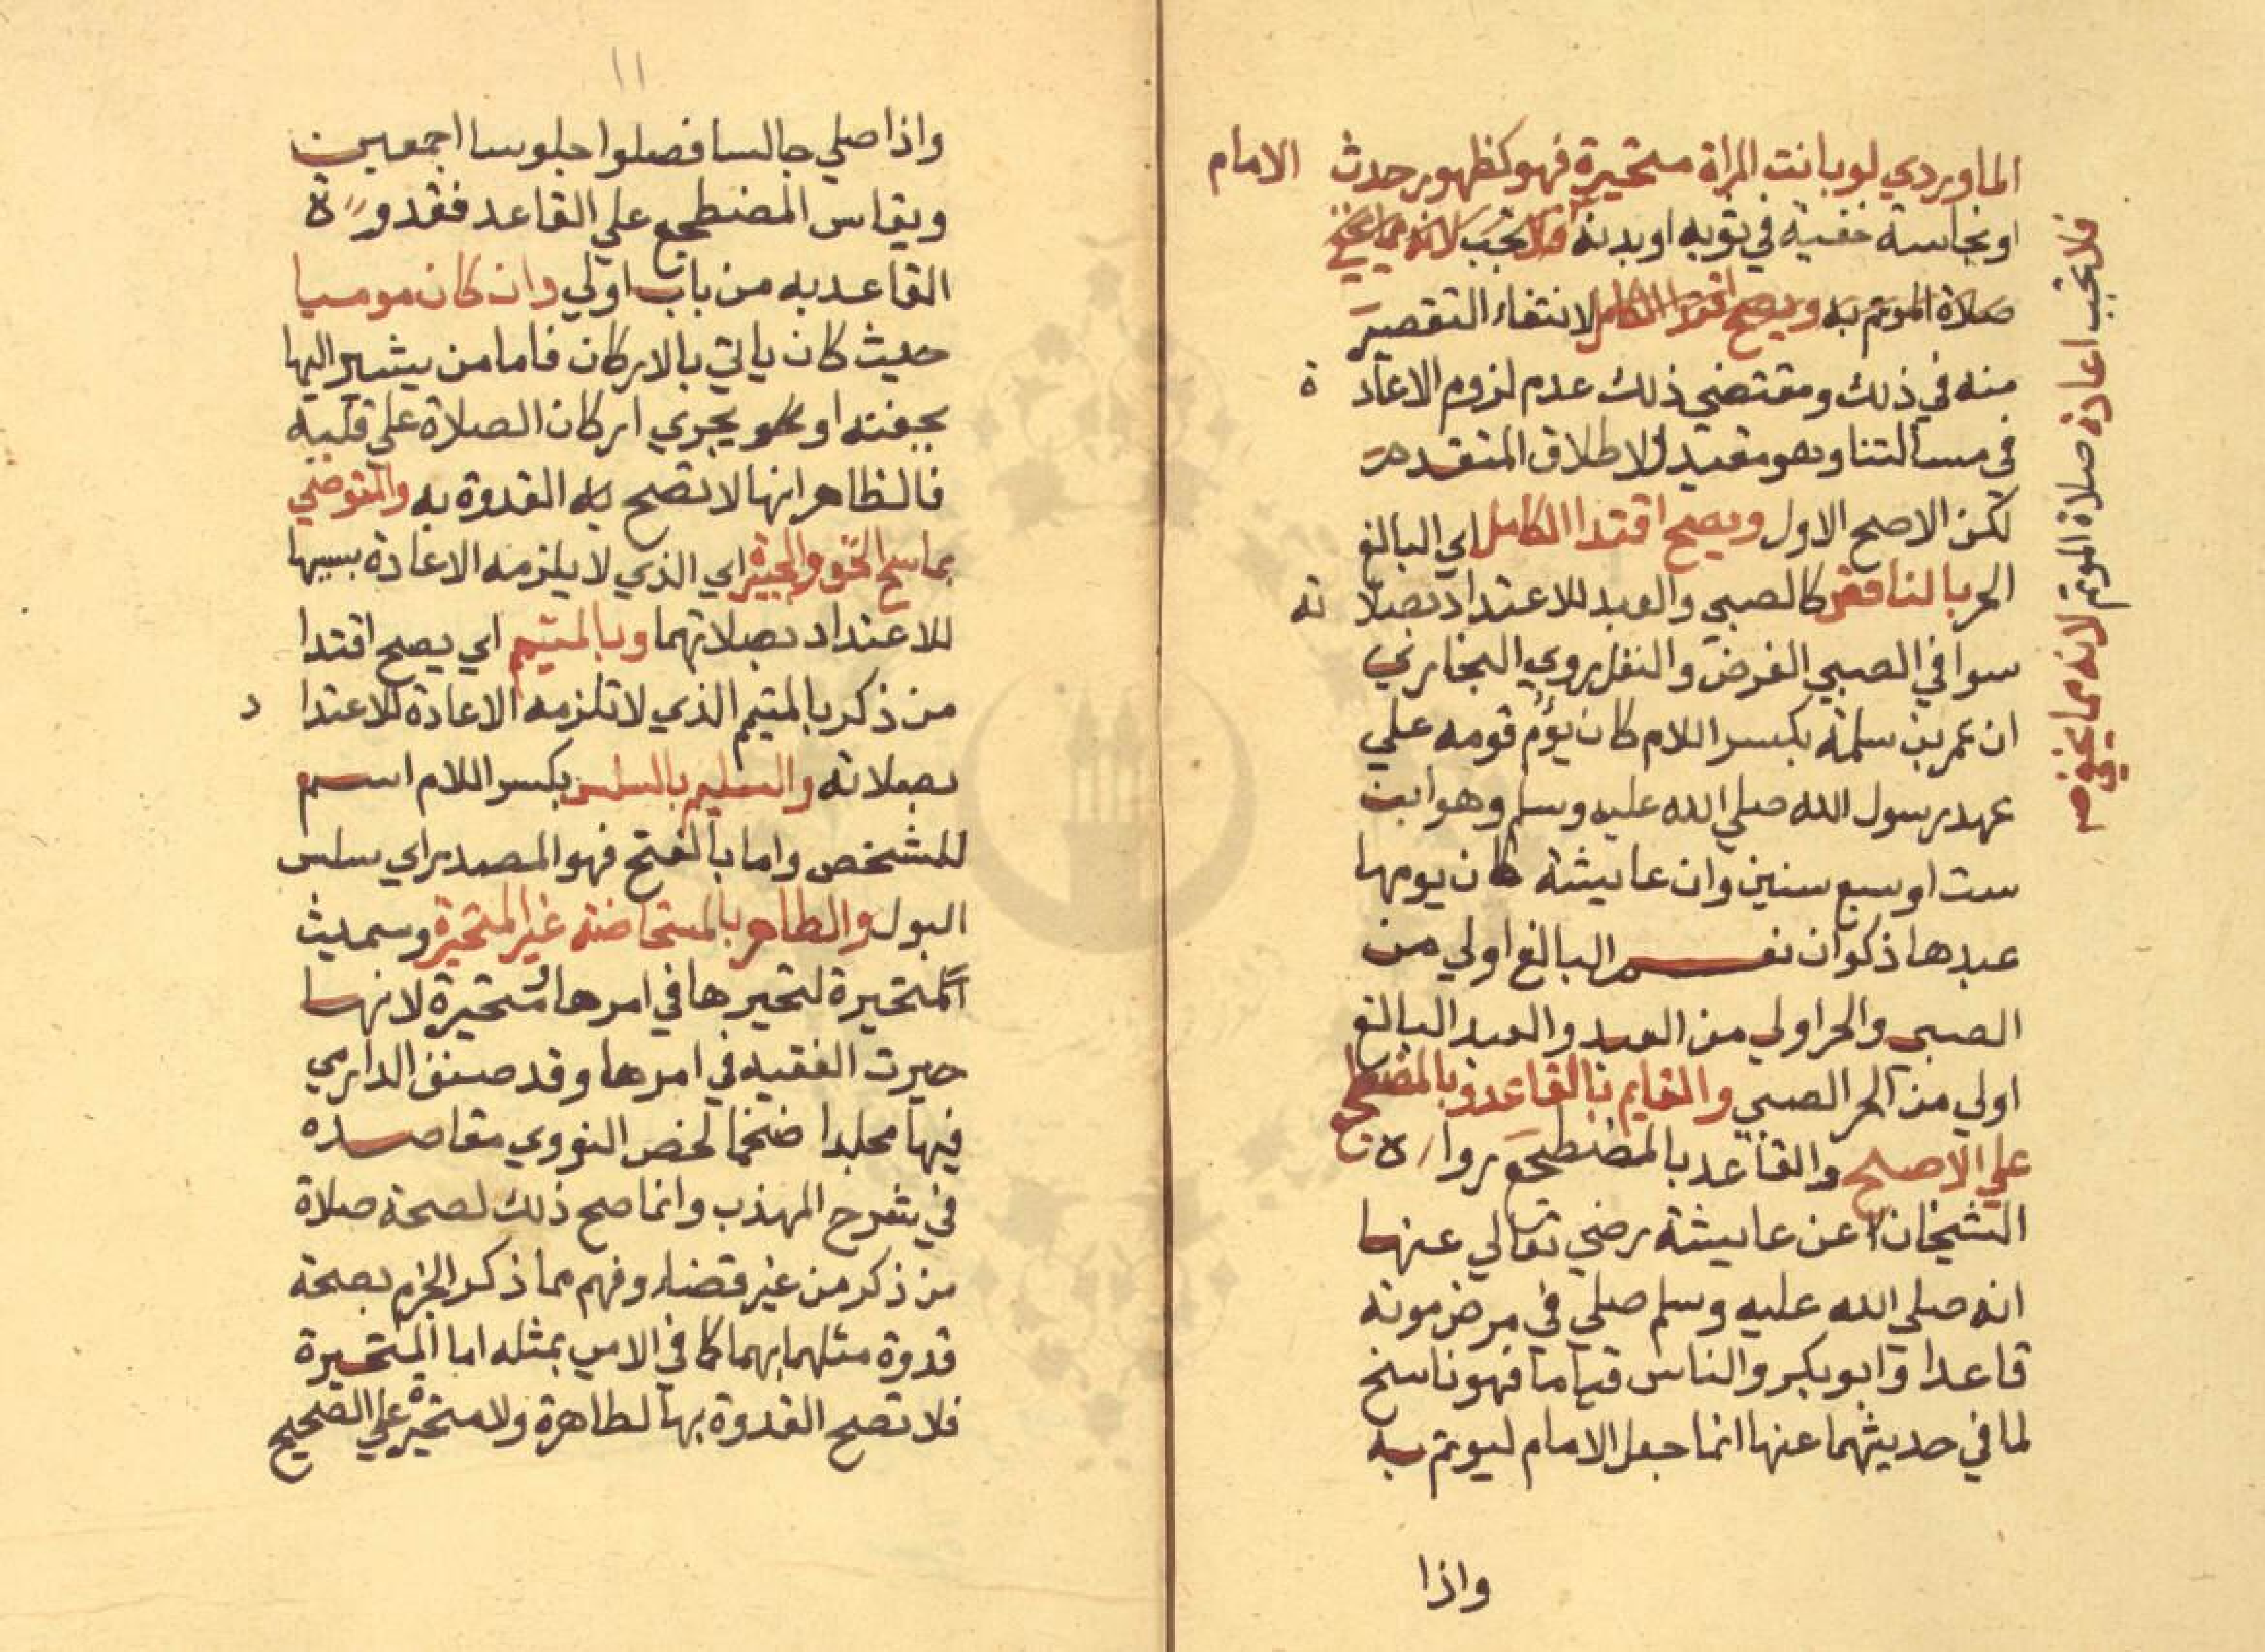 الماوردي لو بانت المراة متحيرة فهو كظهور حدث الامام
او نجاسة خفية في ثوبه او بدنه فلا تجب لانه مما يخفي
صلاة الموتم به ويصح اقتدا الكامل لانتفاء التقصير
منه في ذلك ومقتضي ذلك عدم لزوم الاعادة
في مسالتنا وهو مقيد للاطلاق المتقدم
لكن الاصح الاول ويصح اقتدا الكامل اي البالغ
الحر بالناقص كالصبي والعبد للاعتداد بصلاته
سوا في الصبي الفرض والنفل روي البخاري
ان عمر بن سلمة بكسر اللام كان يؤم قومه علي
عهد رسول الله صلي الله عليه وسلم وهو ابن
ست او سبع سنين وان عايشة كان يومها
عبدها ذكوان نعم البالغ اولي من
الصبي والحر اولي من العبد والعبد البالغ
اولي من الحر الصبي والقايم بالقاعد وبالمضطجع
علي الاصح والقاعد بالمضطجع رواه
الشيخان عن عايشة رضي تعالي عنها
انه صلي الله عليه وسلم صلي في مرض موته
قاعدا وابو بكر والناس قياما فهو ناسخ
لما في حديثهما عنها انما جعل الامام ليوتم به
واذا
فلا تجب اعادة صلاة الموتم لانه مما يخفي صح
١١
واذا صلي جالسا فصلوا جلوسا اجمعين
ويقاس المضطجع علي القاعد فقدوة
القاعد به من باب اولي وان كان موميا
حيث كان ياتي بالاركان فاما من يشير اليها
بجفنه او يجري اركان الصلاة علي قلبه
فالظاهر انها لا تصح القدوة به والمتوضي
بماسح الخف والجبيرة اي الذي لا يلزمه الاعادة بسببها
للاعتداد بصلاتهما وبالمتيمم اي يصح اقتدا
من ذكر بالمتيمم الذي لا تلزمه الاعادة للاعتداد
بصلاته والسليم بالسلس بكسر اللام اسم
للشخص واما بالفتح فهو المصدر اي سلس
البول والطاهر بالمستحاضة غير المتحيرة وسميت
المتحيرة لتحيرها في امرها متحيرة لانها
حيرت الفقيه في امرها وقد صنف الدارمي
فيها مجلدا ضخما لخص النووي مقاصده
في شرح المهذب وانما صح ذلك لصحة صلاة
من ذكر من غير قضاء وفهم مما ذكر الجزم بصحة
قدوة مثلهما بهما كما في الامي بمثله اما المتحيرة
فلا تصح القدوة بها لطاهرة ولا متحيرة علي الصحيح